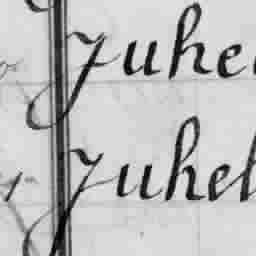 Juhe
Juhel